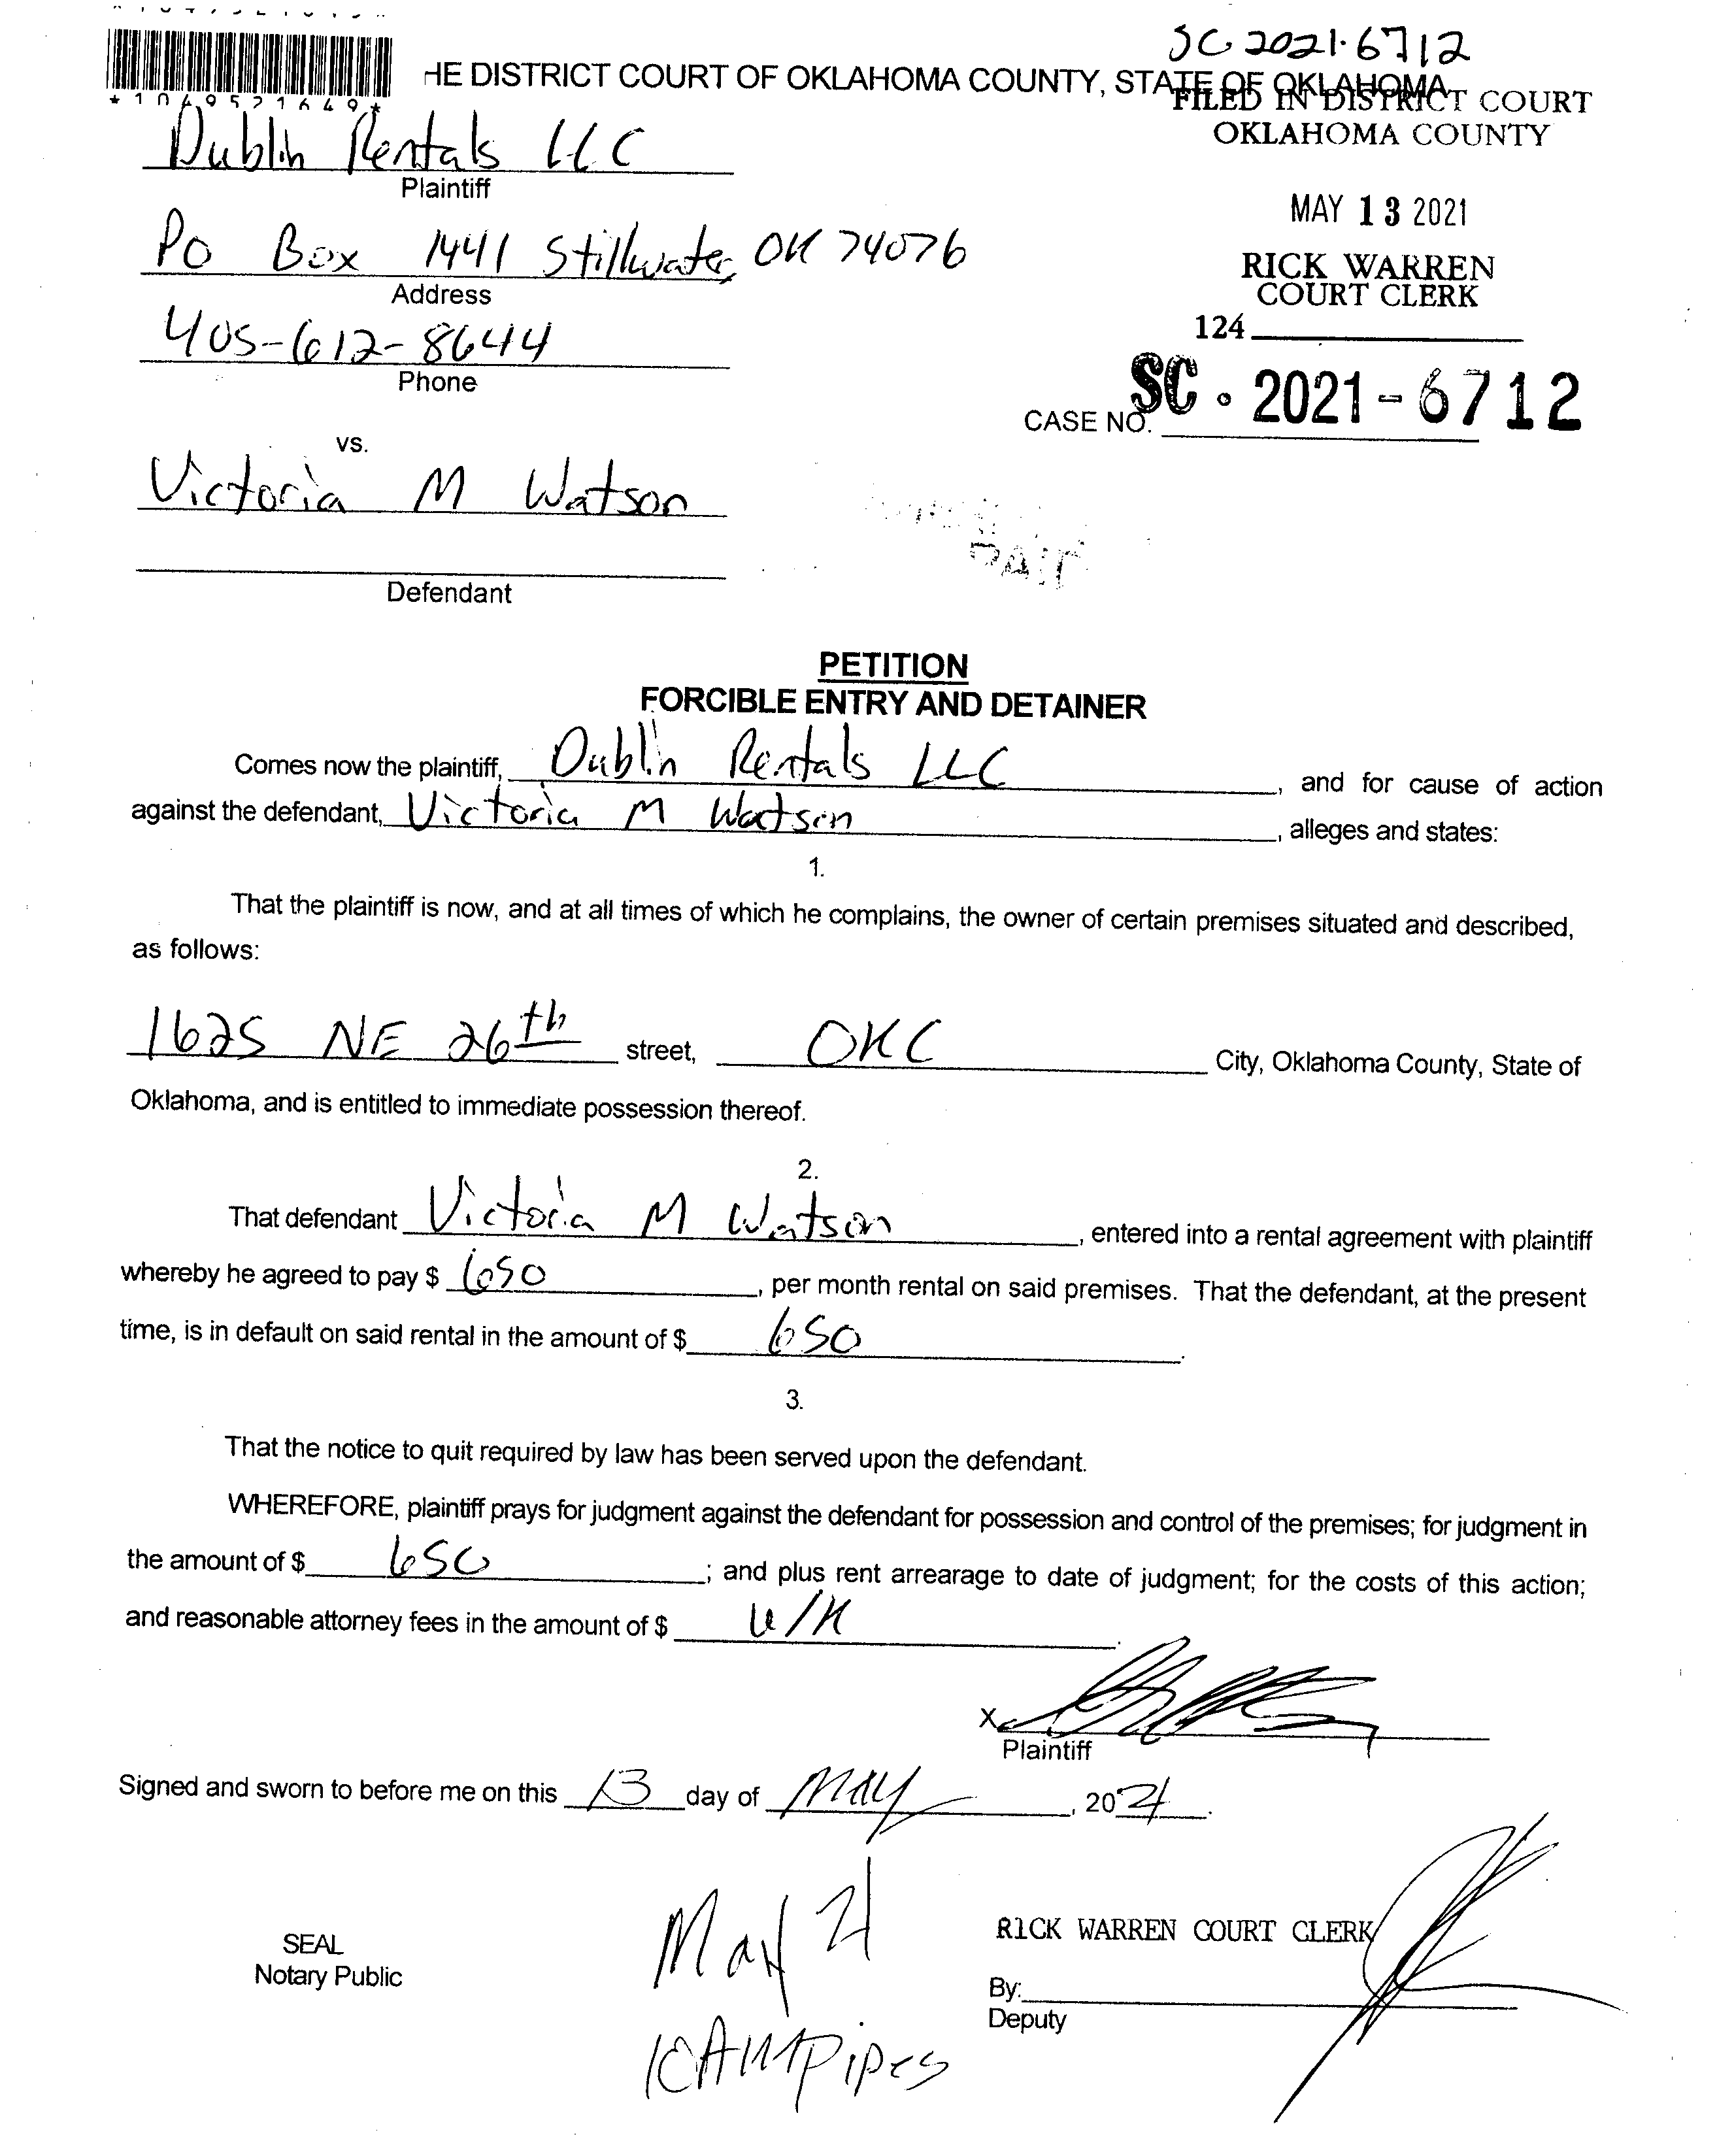 SC 2021-6712
HE DISTRICT COURT OF OKLAHOMA COUNTY, STATE OF OKLAHOMA
*1049521649*
FILED IN DISTRICT COURT
OKLAHOMA COUNTY
Dublin Rentals LLC
Plaintiff
MAY 13 2021
PO Box 1441 Stillwater, OK 74076
Address
RICK WARREN
COURT CLERK
405-612-8644
Phone
124
CASE NO. SC - 2021-6712
vs.
Victoria M Watson
Defendant
PAID
PETITION
FORCIBLE ENTRY AND DETAINER
Comes now the plaintiff, Dublin Rentals LLC, and for cause of action
against the defendant, Victoria M Watson, alleges and states:
1.
That the plaintiff is now, and at all times of which he complains, the owner of certain premises situated and described,
as follows:
1625 NE 26th street, OKC City, Oklahoma County, State of
Oklahoma, and is entitled to immediate possession thereof.
2.
That defendant Victoria M Watson, entered into a rental agreement with plaintiff
whereby he agreed to pay $ 650, per month rental on said premises. That the defendant, at the present
time, is in default on said rental in the amount of $ 650.
3.
That the notice to quit required by law has been served upon the defendant.
WHEREFORE, plaintiff prays for judgment against the defendant for possession and control of the premises; for judgment in
the amount of $ 650; and plus rent arrearage to date of judgment; for the costs of this action;
and reasonable attorney fees in the amount of $ U/K.
X
Plaintiff
Signed and sworn to before me on this 13 day of MAY, 2021.
May 21
SEAL
Notary Public
RICK WARREN COURT CLERK
By:
Deputy